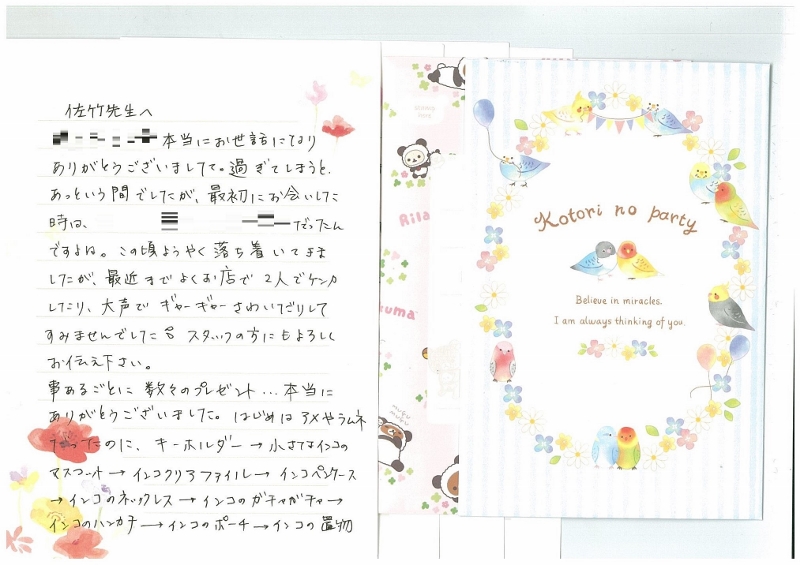 佐竹先生へ
本当にお世話になり
ありがとうございまして。過ぎてしまうと、
あっという間でしたが、最初にお会いした
時は、だったん
ですよね。この頃ようやく落ち着いてきま
したが、最近までよくお店で2人でケンカ
したり、大声でギャーギャーさわいだりして
すみませんでした スタッフの方にもよろしく
お伝え下さい。
事あるごとに数々のプレゼント…本当に
ありがとうございました。はじめはアメやラムネ
だったのに、キーホルダー→小さなインコの
マスコット→インコクリアファイル→インコペンケース
→インコのネックレス→インコのガチャガチャ→
インコのハンカチ→インコのポーチ→インコの置物
Rila
kuma
Kotori no party
Believe in miracles.
I am always thinking of you.